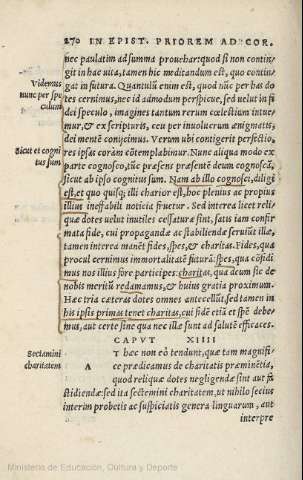 270 IN EPIST. PRIOREM AD COR.
nec paulatim ad summa prouehar: quod si non contin-
git in hac uita, tamen hic meditandum est, quo contin-
gat in futura. Quantulũ enim est, quod nũc per has do
Videmus
nunc per spe
culum
tes cernimus, nec id admodum perspicue, sed uelut in fi
dei speculo, imagines tantum rerum cœlestium intue
mur, & ex scripturis, ceu per inuolucrum ænigmatis,
dei mentẽ conijcimus. Verum ubi contigerit perfectio,
Sicut et cogni
tus sum
res ipsas coràm cõtemplabimur. Nunc aliqua modo ex
parte cognosco, tũc præsens præsentẽ deum cognoscã,
sicut ab ipso cognitus sum. Nam ab illo cognosci, diligi
est, et quo quisq; illi charior est, hoc plenius ac propius
illius ineffabili noticia fruetur. Sed interea licet reli
quæ dotes uelut inutiles cessaturæ sint, satis iam confir
mata fide, cui propagandæ ac stabiliendæ seruiũt illæ,
tamen interea manẽt fides, spes, & charitas. Fides, qua
procul cernimus immortalitatẽ futurã: spes, qua cõfidi
mus nos illius fore participes: charitas, qua deum sic de
nobis meritũ redamamus, & huius gratia proximum.
Hæc tria cæteras dotes omnes antecellũt, sed tamen in
his ipsis primas tenet charitas, cui fidẽ etiã et spẽ debe-
mus, aut certe sine qua nec illæ sunt ad salutẽ efficaces.
CAPVT XIIII
Sectamini
charitatem
A
T hæc non eò tendunt, quæ tam magnifi-
ce prædicamus de charitatis præminẽtia,
quod reliquæ dotes negligendæ sint aut fa
stidiendæ: sed ita sectemini charitatem, ut nihilo secius
interim probetis ac suspiciatis genera linguarum, aut
interpre
Ministerio de Educación, Cultura y Deporte